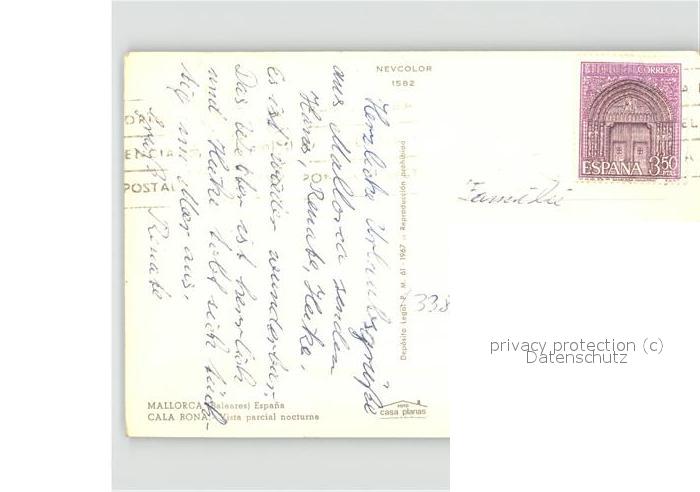 NEVCOLOR
1582
CORREOS
ESPAÑA 3,50
PTAS
POSTAL
Herzliche Urlaubsgrüße
aus Mallorca senden
Hans, Renate, Heike.
Es ist wieder wunderbar.
Das Wetter ist herrlich
und Heike tobt sich tüch-
tig am Meer aus.
Renate
Familie
338
Depósito Legal P. M. 61 - 1967 - Reproducción prohibida
privacy protection (c)
Datenschutz
MALLORCA (Baleares) España
CALA BONA. Vista parcial nocturna
FOTO
casa planas